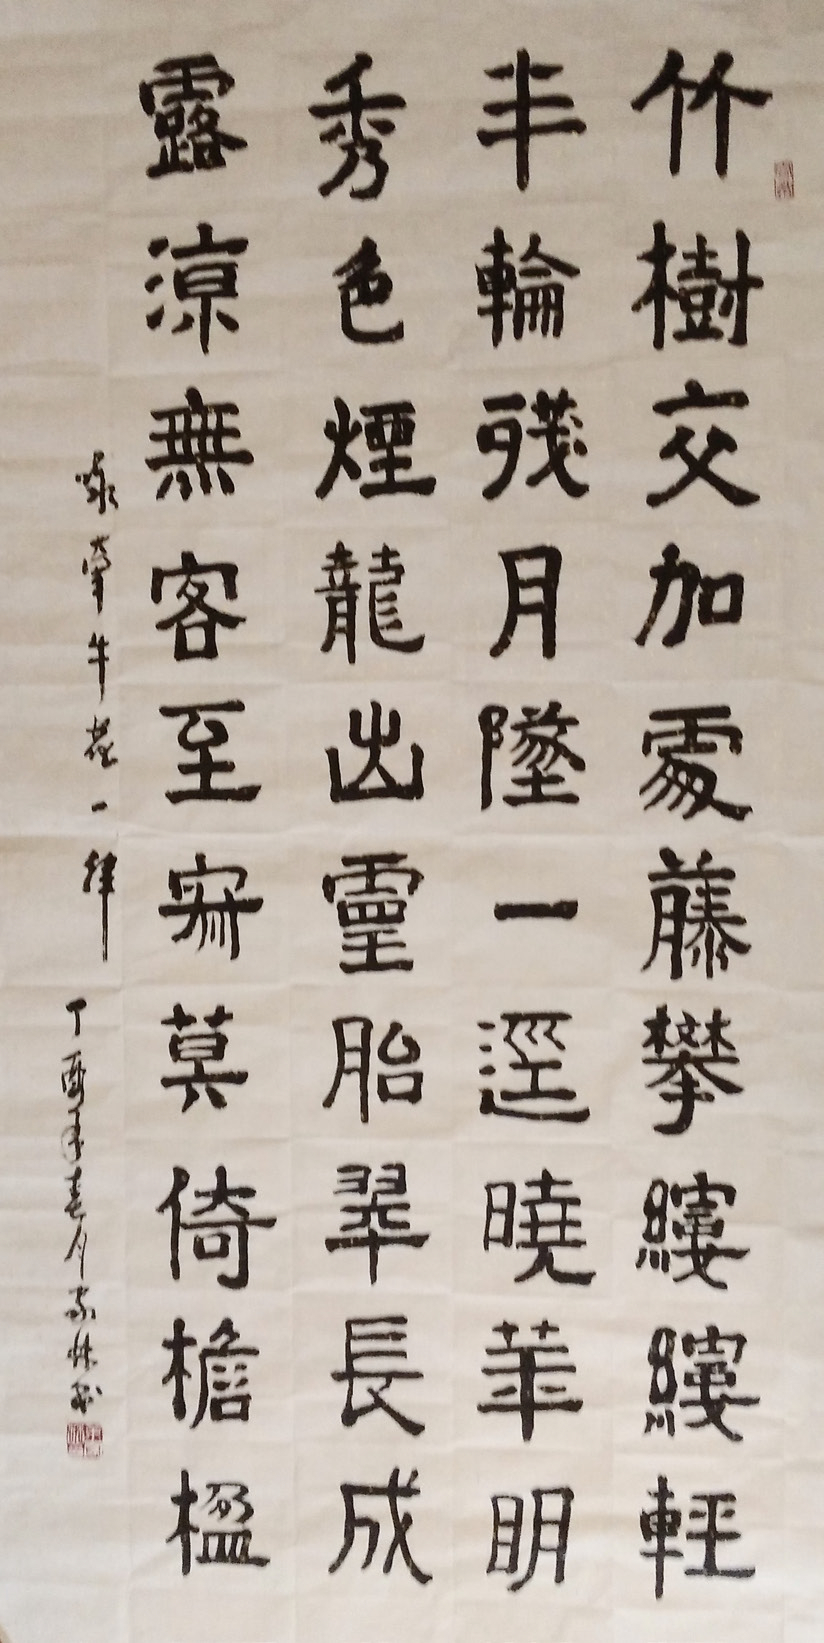 竹樹交加處藤攀縷縷輕
半輪殘月墜一逕曉華明
秀色煙龍出靈胎翠長成
露涼無客至寂莫倚檐楹
詠牽牛花一律
丁酉年春月家林書